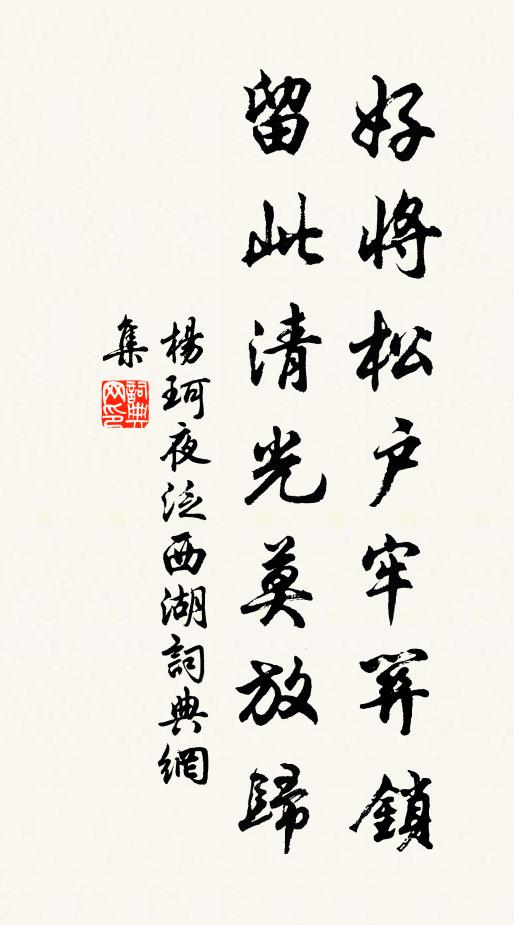 好將松户牢関鎖
留此清光莫放歸
楊珂夜泛西湖詞典網
集
詞典網印